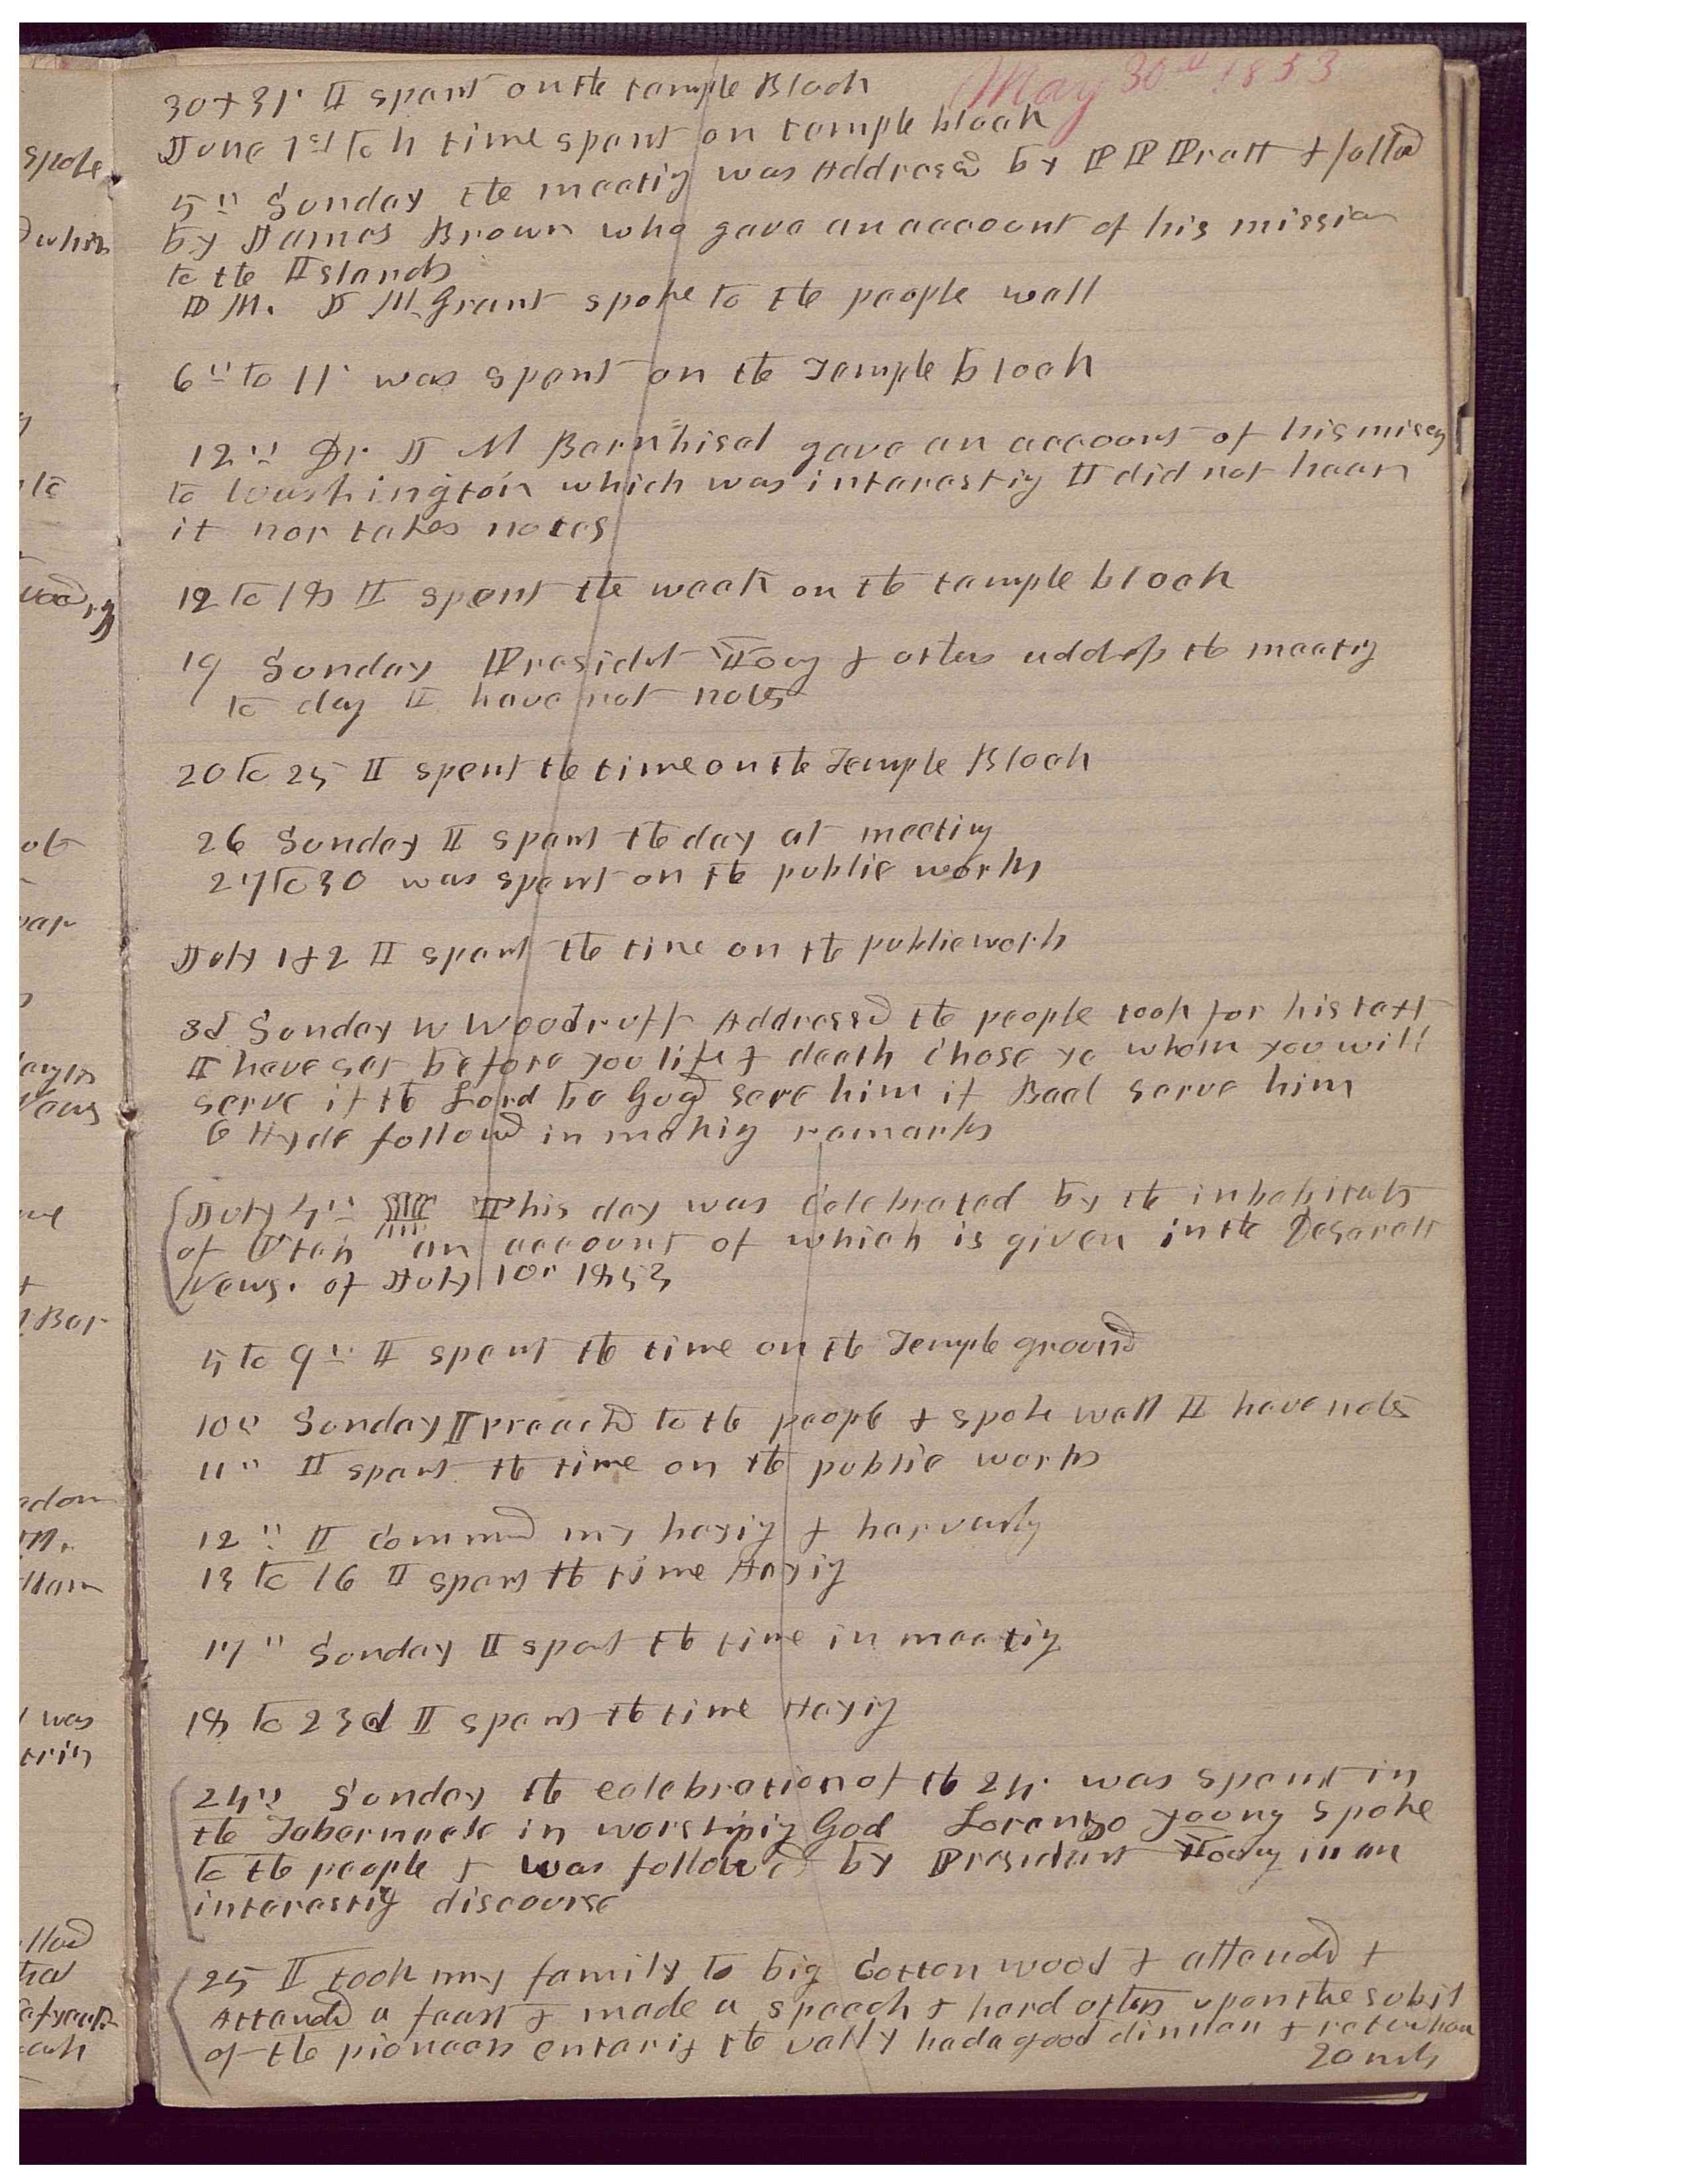 May 30th 1853
30 & 31. I spent on the temple Block
June 1st to 4 time spent on temple block
5th Sunday the meeting was Addressed by P P Pratt & followed
by James Brown who gave an account of his mission
to the Islands
P M. J M Grant spoke to the people well
6th to 11. was spent on the Temple block
12th Dr J M Bernhisel gave an account of his
to Washington which was interesting I did not hear
it nor takes notes
12 to 18 I spent the week on the temple block
19 Sunday President Young & others address the meeting
to day I have not notes
20 to 25 I spent the time on the Temple Block
26 Sunday I spent the day at meeting
27 to 30 was spent on the public works
July 1 & 2 I spent the time on the public work
3d Sunday W Woodruff Addressed the people took for his text
I have set before you life & death Chose ye whom you will
serve if the Lord be God serve him if Baal serve him
O Hyde followed in making remarks
July 4th This day was Celebrated by the inhabitants
of Utah an account of which is given in the Deserett
News. of July 10. 1853
5 to 9th I spent the time on the Temple ground
10th Sunday I preached to the people & spoke well I have notes
11th I spent the time on the public works
12th I Commenced my haying & harvesting
13 to 16 I spent the time Haying
17th Sunday I spent the time in meeting
18 to 23d I spent the time Haying
24th Sunday the celebration of the 24. was spent in
the Tabernacle in worshiping God Lorenzo Young spoke
to the people & was followed by President Young in an
interesting discourse
25 I took my family to big Cotton wood & attended &
Attended a feast & made a speech & hard others upon the subjet
of the pioneers entering the vally had a good dinner & return home
20 mls